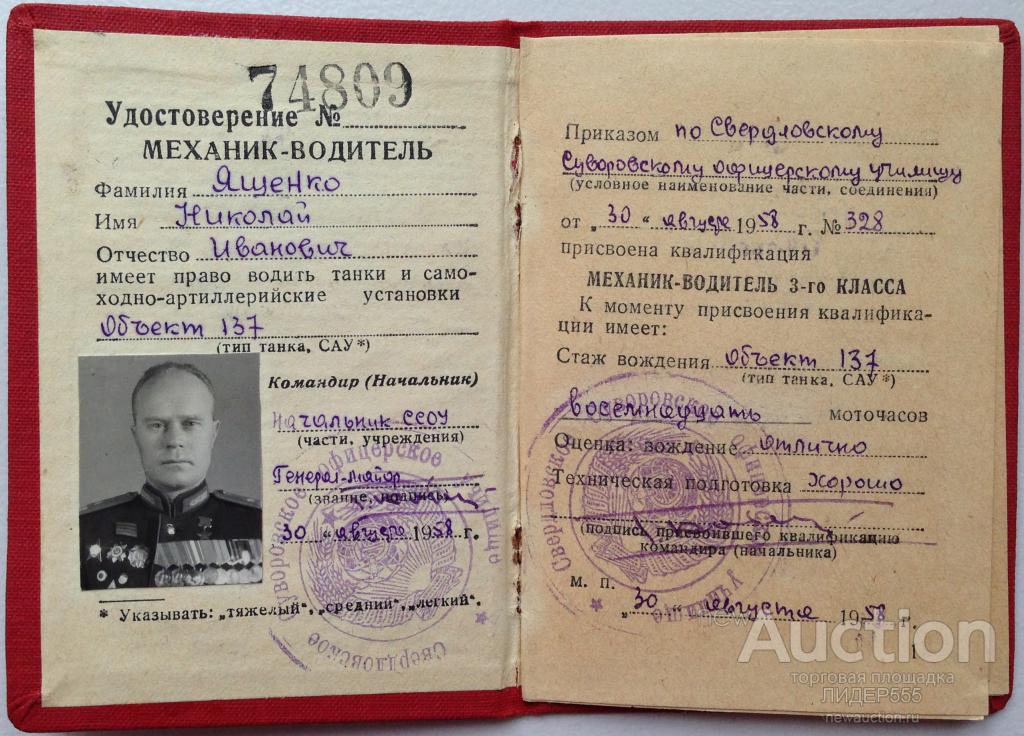 74809
Удостоверение №
МЕХАНИК-ВОДИТЕЛЬ
Фамилия Ященко
Имя Николай
Отчество Иванович
имеет право водить танки и само-
ходно-артиллерийские установки
Объект 137
(тип танка, САУ*)
Командир (Начальник)
Начальник ССОУ
(части, учреждения)
Генерал-майор
(звание, подпись)
30 " августа 1958 г.
* Указывать: „тяжелый", „средний", „легкий".
Свердловское Суворовское офицерское училище
Приказом по Свердловскому
Суворовскому офицерскому училищу
(условное наименование части, соединения)
от „30" августа 1958 г. № 328
присвоена квалификация
МЕХАНИК-ВОДИТЕЛЬ 3-го КЛАССА
К моменту присвоения квалифика-
ции имеет:
Стаж вождения Объект 137
(тип танка, САУ*)
восемнадцать моточасов
Оценка: вождение отлично
Техническая подготовка хорошо
(подпись присвоившего квалификацию
командира (начальника)
М. П.
„30" августа 1958 г.
1
Свердловское Суворовское училище
Auction
торговая площадка
ЛИДЕР555
newauction.ru